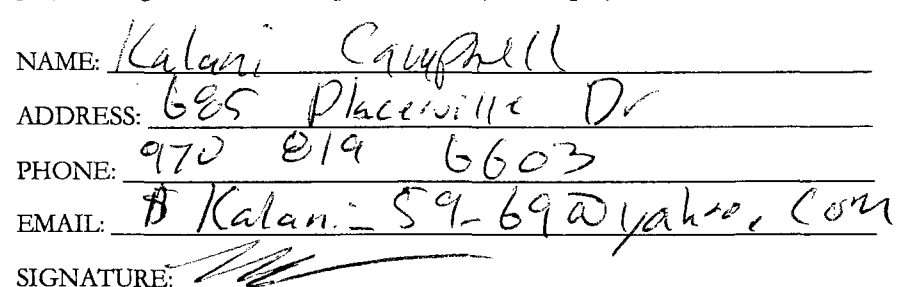 NAME: Kalani Campbell
ADDRESS: 685 Placerville Dr
PHONE: 970 819 6603
EMAIL: Kalani_59_69@yahoo.com
SIGNATURE: